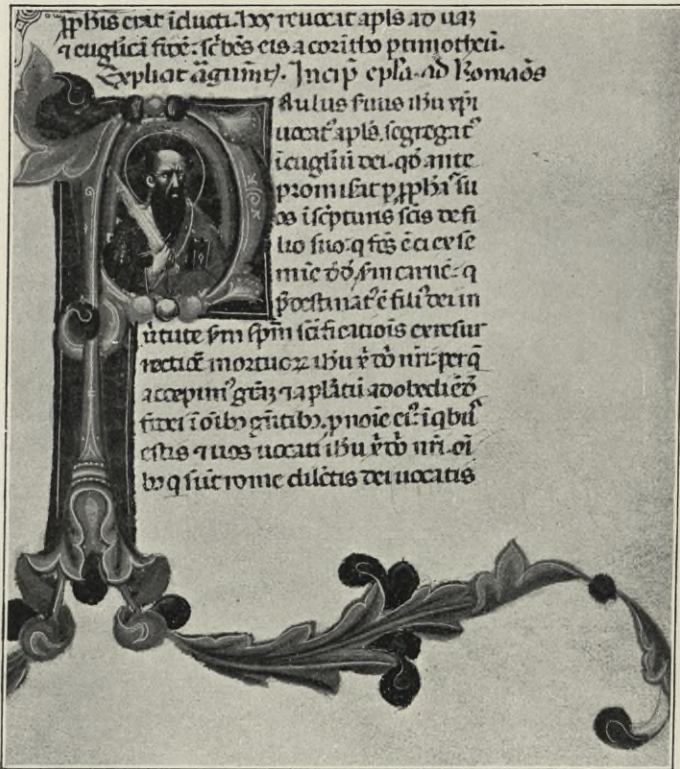 ꝓph̄is erāt īducti. hos reuocat apl̄s ad uaȝ
⁊ euglīcā fidē. sc̄bēs eis a corintho p timotheū.
Explicit āgum̄t. Incip̄ ep̄la. ad Romāos
Paulus ſuus ih̄u xp̄i
uocatꝰ apl̄s. ſegregatꝰ
ī euglīū dei. qd̄ ante
promiſat p̱ ꝓph̄aſ ſu
os ī ſc̄pturis ſc̄is de fi
lio ſuo. q fc̄s ē ei ex ſe
mīe dd̄. ſm̄ carnē. q
p̄deſtinatꝰ ē filiꝰ dei in
ūtute ſm̄ ſpm̄ ſc̄ificatiōis ex reſur
rectiōe mortuoꝝ ih̄u x̄ dn̄i nr̄i. per qȝ
accepimꝰ gr̄aȝ ⁊ apl̄atū ad obediēdū
fidei ī oīb gn̄tib. p noīe eiꝰ. ī qbꝰ
eſtis ⁊ uos uocati ih̄u x̄ dn̄i nr̄i. oī
bꝫ q ſunt rome dilc̄tis dei uocatis